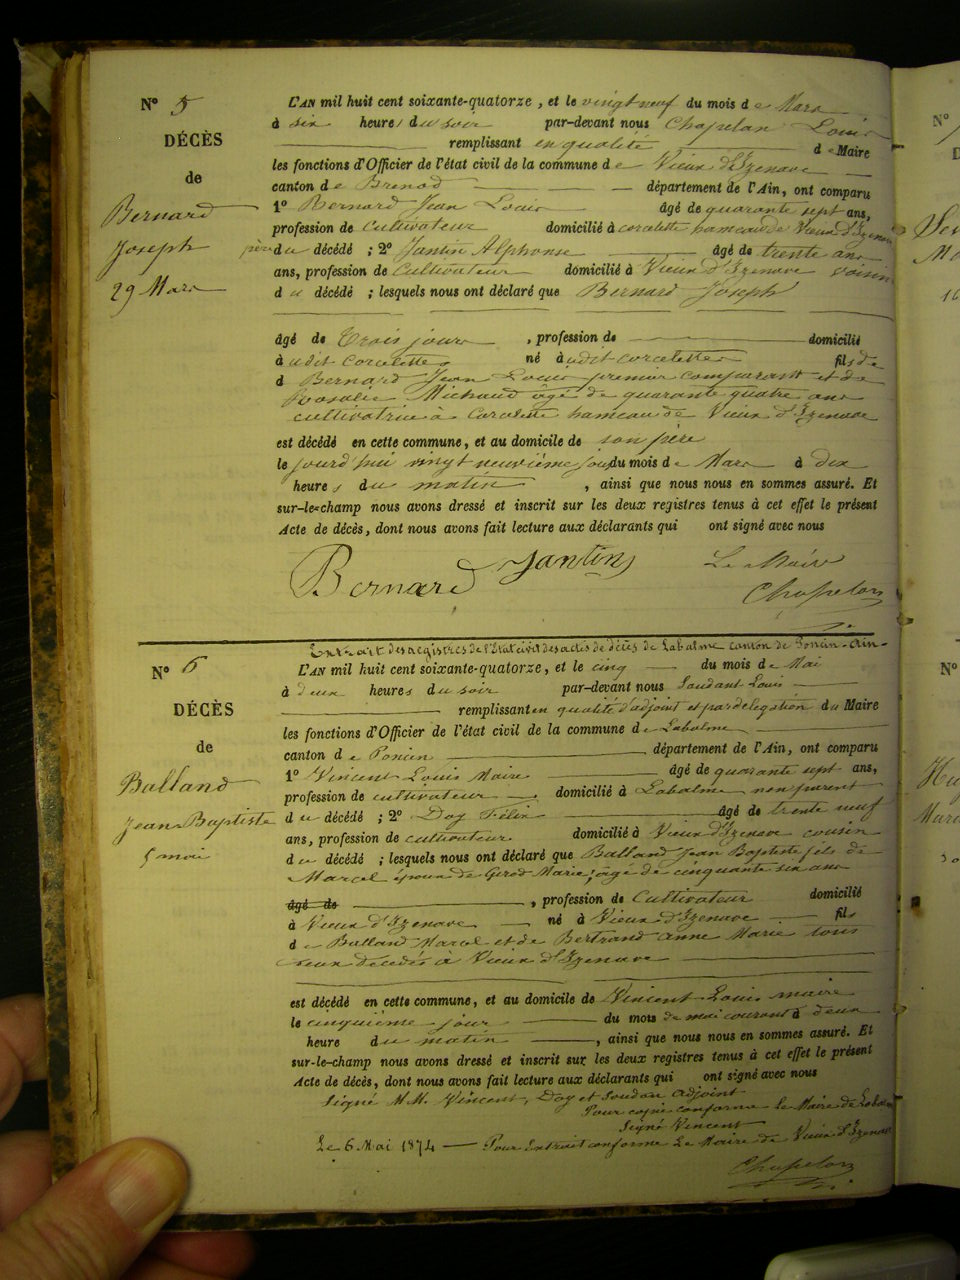 N° 5
DÉCÈS
de
Bernard
Joseph
29 Mars
L'AN mil huit cent soixante-quatorze, et le vingt neuf du mois de Mars
à six heures du soir par-devant nous Chapelan Louis
remplissant en qualité de Maire
les fonctions d'Officier de l'état civil de la commune de Vieux d'Izenave
canton de Brenod département de l'Ain, ont comparu
1° Bernard Jean Louis âgé de quarante sept ans,
profession de Cultivateur domicilié à corcelette hameau de Vieux d'Izenave
père du décédé ; 2° Jantin Alphonse âgé de trente ans
ans, profession de Cultivateur domicilié à Vieux d'Izenave voisin
du décédé ; lesquels nous ont déclaré que Bernard Joseph
âgé de Trois jours , profession de domicilié
à udit corcelettes né à udit corcelettes fils de
d Bernard Jean Louis premier comparant et de
Rosalie Michaud âgé de quarante quatre ans
cultivatrice à Corcelette hameau de Vieux d'Izenave
est décédé en cette commune, et au domicile de son père
le jourd'hui vingt neuvième jour du mois de Mars à dix
heures du matin , ainsi que nous nous en sommes assuré. Et
sur-le-champ nous avons dressé et inscrit sur les deux registres tenus à cet effet le présent
Acte de décès, dont nous avons fait lecture aux déclarants qui ont signé avec nous
Bernard Jantin Le Maire
Chapelan
Extrait des registres de l'Etat civil des actes de décès de Labalme canton de Poncin - Ain -
N° 6
DÉCÈS
de
Balland
Jean Baptiste
5 mai
L'AN mil huit cent soixante-quatorze, et le cinq du mois de Mai
à deux heures du soir par-devant nous Soudant Louis
remplissant en qualité d'adjoint et par delegation du Maire
les fonctions d'Officier de l'état civil de la commune de Labalme
canton de Poncin département de l'Ain, ont comparu
1° Vincent Louis Maire âgé de quarante sept ans,
profession de cultivateur domicilié à Labalme non parent
du décédé ; 2° Doy Félix âgé de trente neuf
ans, profession de cultivateur domicilié à Vieux d'Izenave cousin
du décédé ; lesquels nous ont déclaré que Balland Jean Baptiste fils de
Marcel époux de Girod Marie, âgé de cinquante six ans
âgé de , profession de Cultivateur domicilié
à Vieux d'Izenave né à Vieux d'Izenave fils
de Balland Marcel et de Bertrand Anne Marie tous
deux décédés à Vieux d'Izenave
est décédé en cette commune, et au domicile de Vincent Louis maire
le cinquième jour du mois de mai courant à deux
heure du matin , ainsi que nous nous en sommes assuré. Et
sur-le-champ nous avons dressé et inscrit sur les deux registres tenus à cet effet le présent
Acte de décès, dont nous avons fait lecture aux déclarants qui ont signé avec nous
Signé M.M. Vincent, Doy et Soudan Adjoint
Pour copie conforme Le Maire de Labalme
Signé Vincent
Le 6 Mai 1874 — Pour Extrait conforme Le Maire de Vieux d'Izenave
Chapelan
N°
N°